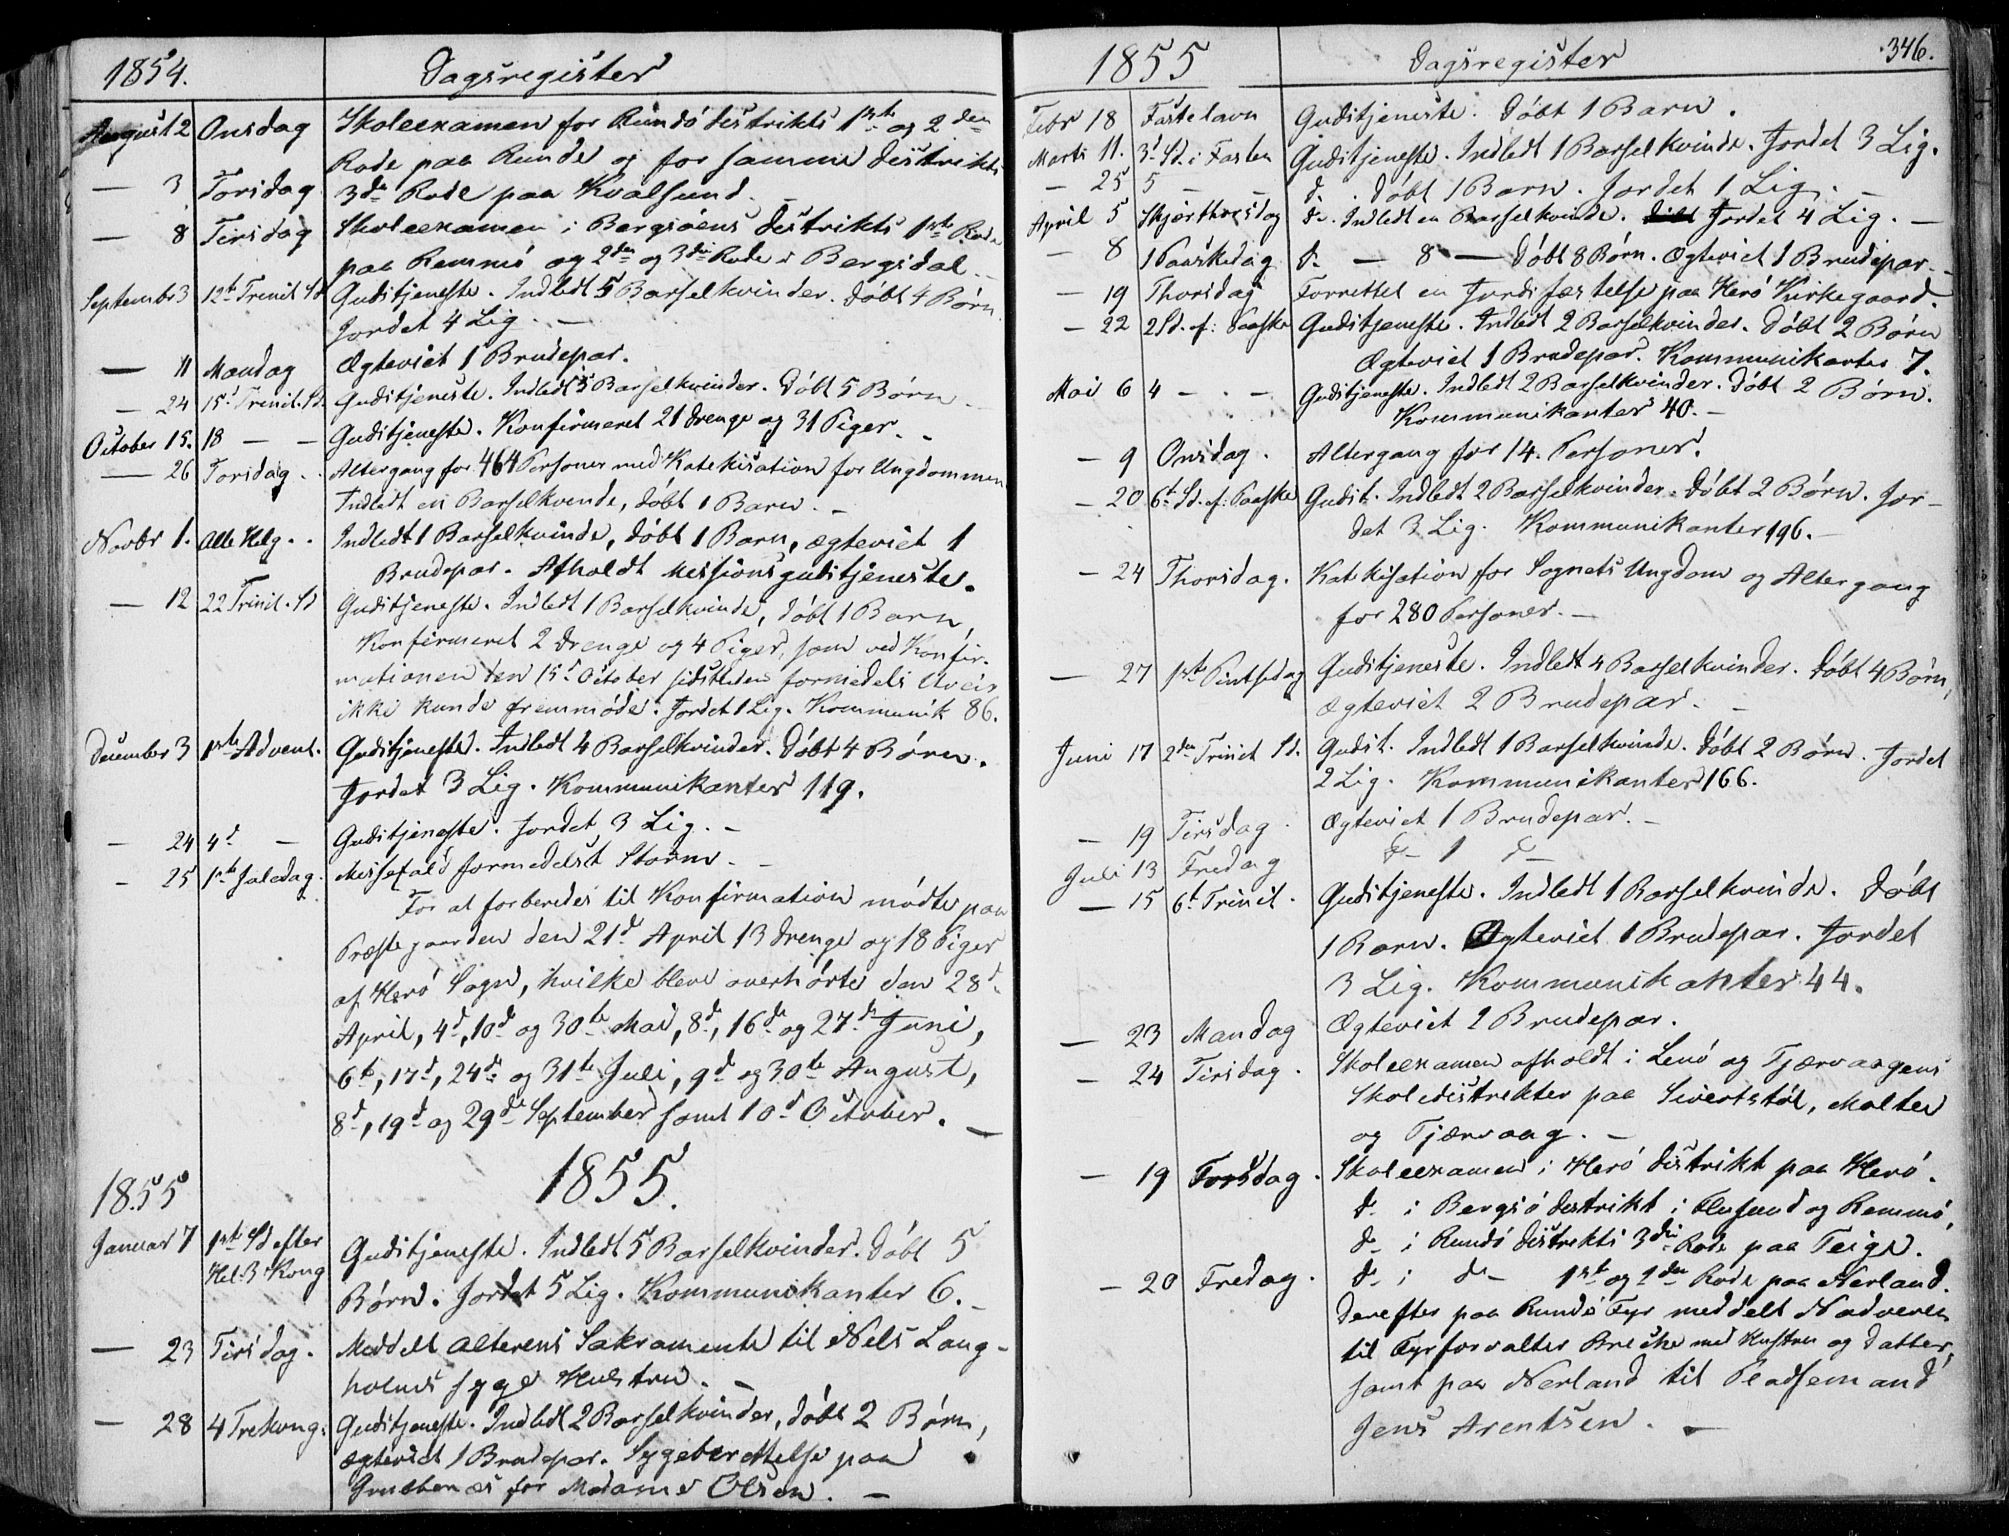 1854. Dagsregister
August 2 Onsdag Skoleexamen for Rundö Distrikts 1ste og 2den
Rode paa Runde og for samme Distrikts
— 3 Torsdag 3die Rode paa Kvalsund.
— 8 Tirsdag Skoleexamen i Bergsöens Distrikts 1ste Rode
paa Remmö og 2den og 3die Rode i Bergsdal.
September 3 12te Trinit. Sd Gudstjeneste. Indledt 5 Barselkvinder. Döbt 4 Börn.
Jordet 4 Lig. —
— 11 Mandag Ægteviet 1 Brudepar.
— 24 15d Trinit. Sd. Gudstjeneste. Indledt 5 Barselkvinder. Döbt 5 Börn. —
October 15. 18 — — Gudstjeneste. Konfirmeret 21 Drenge og 31 Piger. —
— 26 Torsdag. Altergang for 464 Personer med Katekisation for Ungdommen
Indledt en Barselkvinde, döbt 1 Barn. —
Novbr 1. Alle Helg. Indledt 1 Barselkvinde, döbt 1 Barn, ægteviet 1
Brudepar. Afholdt Missionsgudstjeneste.
— 12 22 Trinit. Sd Gudstjeneste. Indledt 1 Barselkvinde, döbt 1 Barn,
Konfirmeret 2 Drenge og 4 Piger, som ved Konfir-
mationen den 15d October sidstleden formedels Uveir
ikke kunde fremmöde. Jordet 1 Lig. Kommunik 86.
December 3 1ste Advent. Gudstjeneste. Indledt 4 Barselkvinder. Döbt 4 Börn.
Jordet 3 Lig. Kommunikanter 119.
— 24 4d — Gudstjeneste. Jordet 3 Lig. —
— 25 1ste Juledag. Messefald formedelst Storm. —
For at forberedes til Konfirmation mödte paa
Præstegaarden den 21d April 13 Drenge og 18 Piger
af Herö Sogn, hvilke bleve overhörte den 28d
April, 4d, 10d og 30te Mai, 8d, 16de og 27de Juni,
6te, 17d, 24de og 31te Juli, 9d og 30te August,
8d, 19d og 29de September samt 10d October. —
1855 1855.
Januar 7 1ste Sd efter Gudstjeneste. Indledt 5 Barselkvinder. Döbt 5
Hel. 3 Kong Börn. Jordet 5 Lig. Kommunikanter 6. —
— 23 Tirsdag. Meddelt Alterens Sakramente til Nels Lang-
holms syge Hustru. —
— 28 4 Trekong. Gudstjeneste. Indledt 2 Barselkvinder, döbt 2 Börn,
ægteviet 1 Brudepar. Sygeberettelse paa
for Madame Olsen. —
1855 Dagsregister 346.
Febr 18 Fastelavn Gudstjeneste. Döbt 1 Barn.
Marts 11. 3d Sd. i Fasten Gudstjeneste. Indledt 1 Barselkvinde. Jordet 3 Lig.
— 25 5 — — do. Döbt 1 Barn. Jordet 1 Lig. —
April 5 Skjærthorsdag do. Indledt en Barselkvinde. Jordet 4 Lig. —
— 8 1 Paaskedag do — 8 — Döbt 8 Börn. Ægteviet 1 Brudepar.
— 19 Thorsdag Forrettet en Jordfæstelse paa Herö Kirkegaard.
— 22 2 Sd. ef: Paaske Gudstjeneste. Indledt 2 Barselkvinder. Döbt 2 Börn
Ægteviet 1 Brudepar. Kommunikanter 7.
Mai 6 4 — - — Gudstjeneste. Indledt 2 Barselkvinder. Döbt 2 Börn.
Kommunikanter 40. —
— 9 Onsdag. Altergang for 14 Personer.
— 20 6te Sd. ef: Paaske Gudst. Indledt 2 Barselkvinder. Döbt 2 Börn. Jor-
det 3 Lig. Kommunikanter 196. —
— 24 Thorsdag. Katekisation for Sognets Ungdom og Altergang
for 280 Personer. —
— 27 1ste Pintsedag Gudstjeneste. Indledt 4 Barselkvinder. Döbt 4 Börn,
Ægteviet 2 Brudepar. —
Juni 17 2den Trinit Sd. Gudst. Indledt 1 Barselkvinde. Döbt 2 Börn. Jordet
2 Lig. Kommunikanter 166.
— 19 Tirsdag. Ægteviet 1 Brudepar. —
Juli 13 Fredag do 1 do
— 15 6te Trinit. Gudstjeneste. Indledt 1 Barselkvinde. Döbt
1 Barn. Ægteviet 1 Brudepar. Jordet
3 Lig. Kommunikanter 44.
— 23 Mandag Ægteviet 2 Brudepar.
— 24 Tirsdag. Skoleexamen afholdt i Lenö og Tjærvaagens
Skoledistrikter paa Sivertstöl, Molten
og Tjærvaag. —
— 19 Torsdag. Skoleexamen i Herö Distrikt paa Herö.
do i Bergsö Distrikt i Flusund og Remmö,
do i Rundö Distrikts 3die Rode paa Teige.
— 20 Fredag. do i do — 1ste og 2den Rode paa Nerland.
Derefter paa Rundö Fyr meddelt Nadveren
til Fyrforvalter med Hustru og Datter,
samt paa Nerland til Pladsemand
Jens Arentsen. —